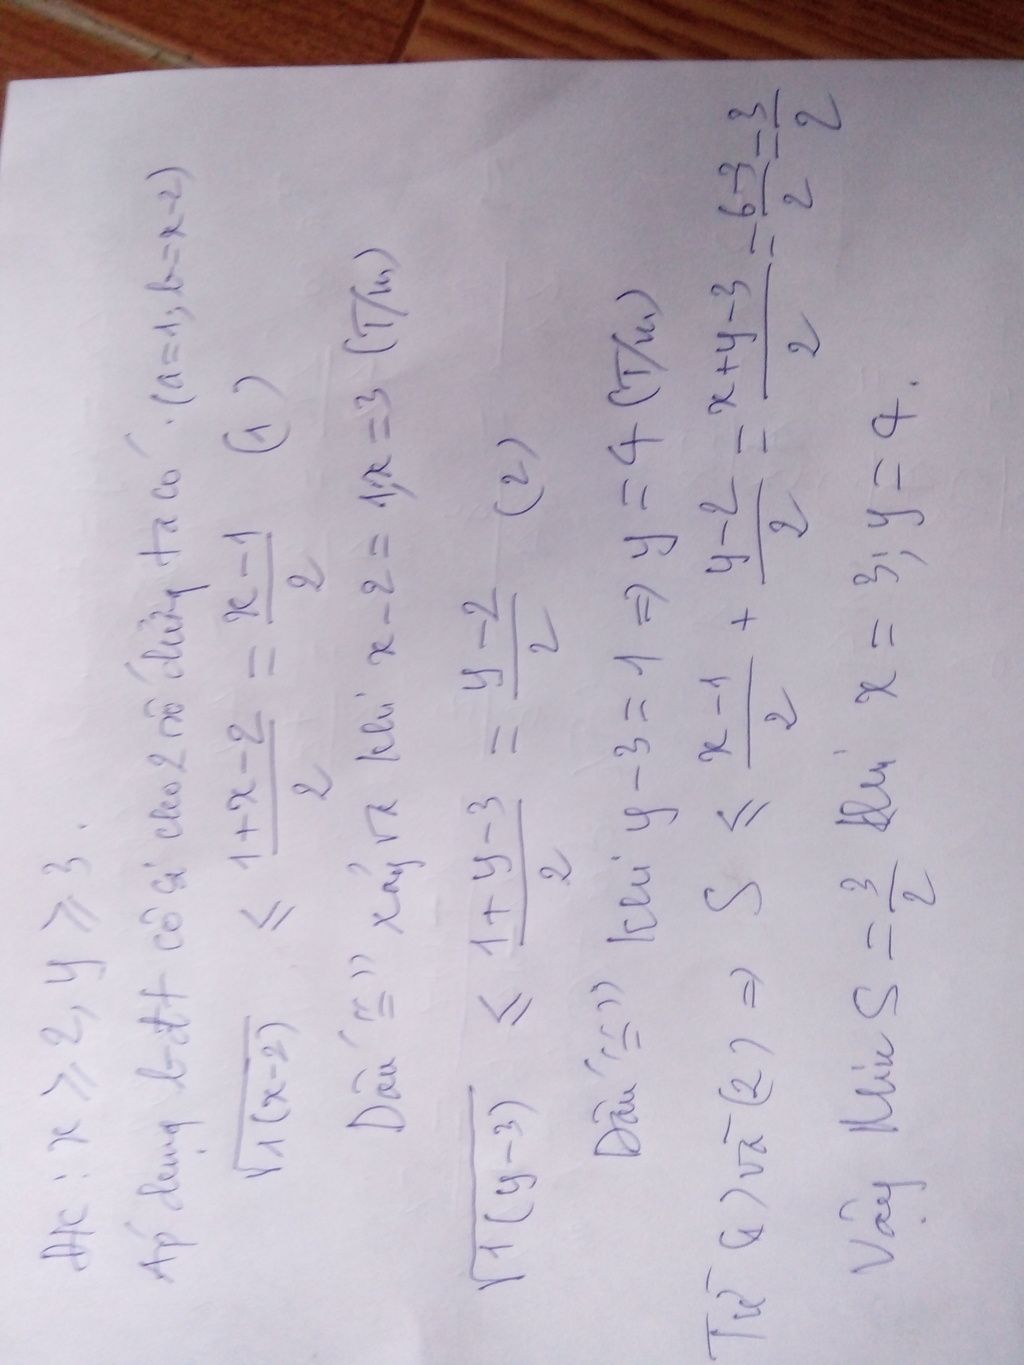 ĐK : x ≥ 2, y ≥ 3.
Áp dụng bđt cô si cho 2 số dương ta có. (a=1; b=x-2)
√1(x-2) ≤ (1+x-2)/2 = (x-1)/2 (1)
Dấu "=" xảy ra khi x-2 = 1, x = 3 (T/m)
√1(y-3) ≤ (1+y-3)/2 = (y-2)/2 (2)
Dấu "=" khi y-3 = 1 ⇒ y = 4 (T/m)
Từ (1) và (2) ⇒ S ≤ (x-1)/2 + (y-2)/2 = (x+y-3)/2 = (6-3)/2 = 3/2
Vậy Min S = 3/2 khi x = 3; y = 4.